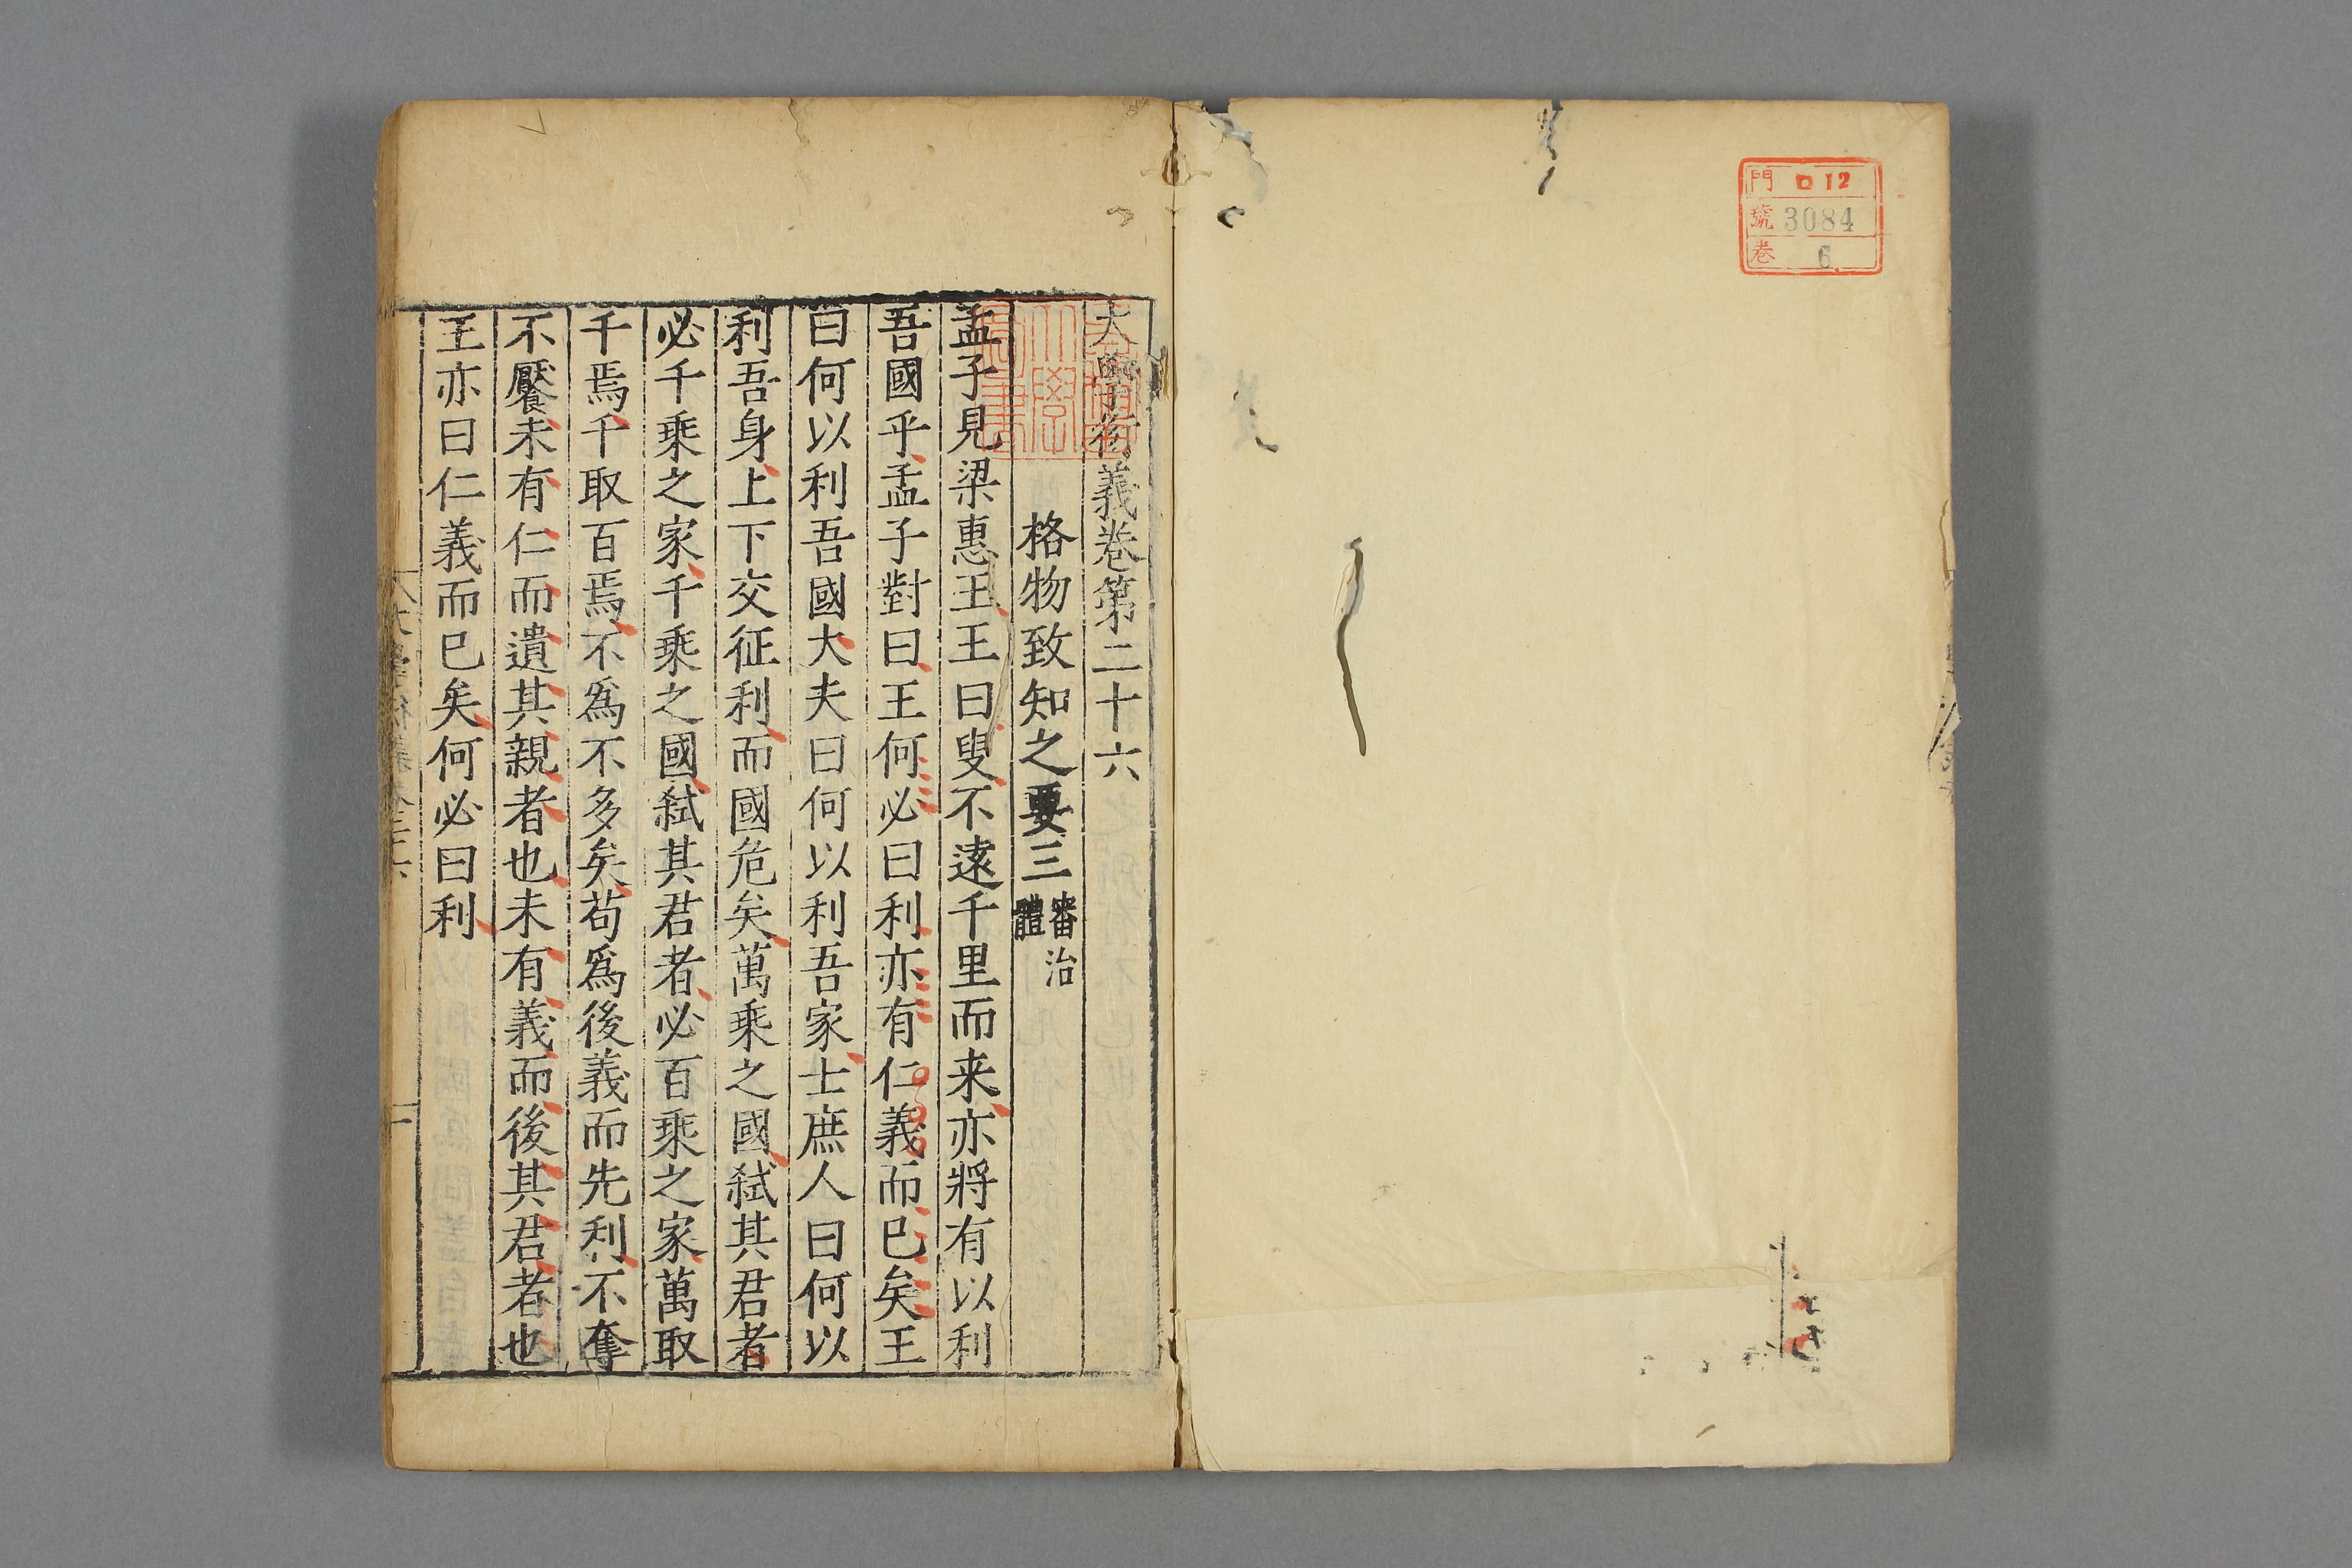 門 ロ12
號 3084
卷 6
大學衍義卷第二十六
格物致知之要三 審治體
孟子見梁惠王王曰叟不遠千里而来亦將有以利
吾國乎孟子對曰王何必曰利亦有仁義而已矣王
曰何以利吾國大夫曰何以利吾家士庶人曰何以
利吾身上下交征利而國危矣萬乘之國弑其君者
必千乘之家千乘之國弑其君者必百乘之家萬取
千焉千取百焉不為不多矣苟為後義而先利不奪
不饜未有仁而遺其親者也未有義而後其君者也
王亦曰仁義而已矣何必曰利